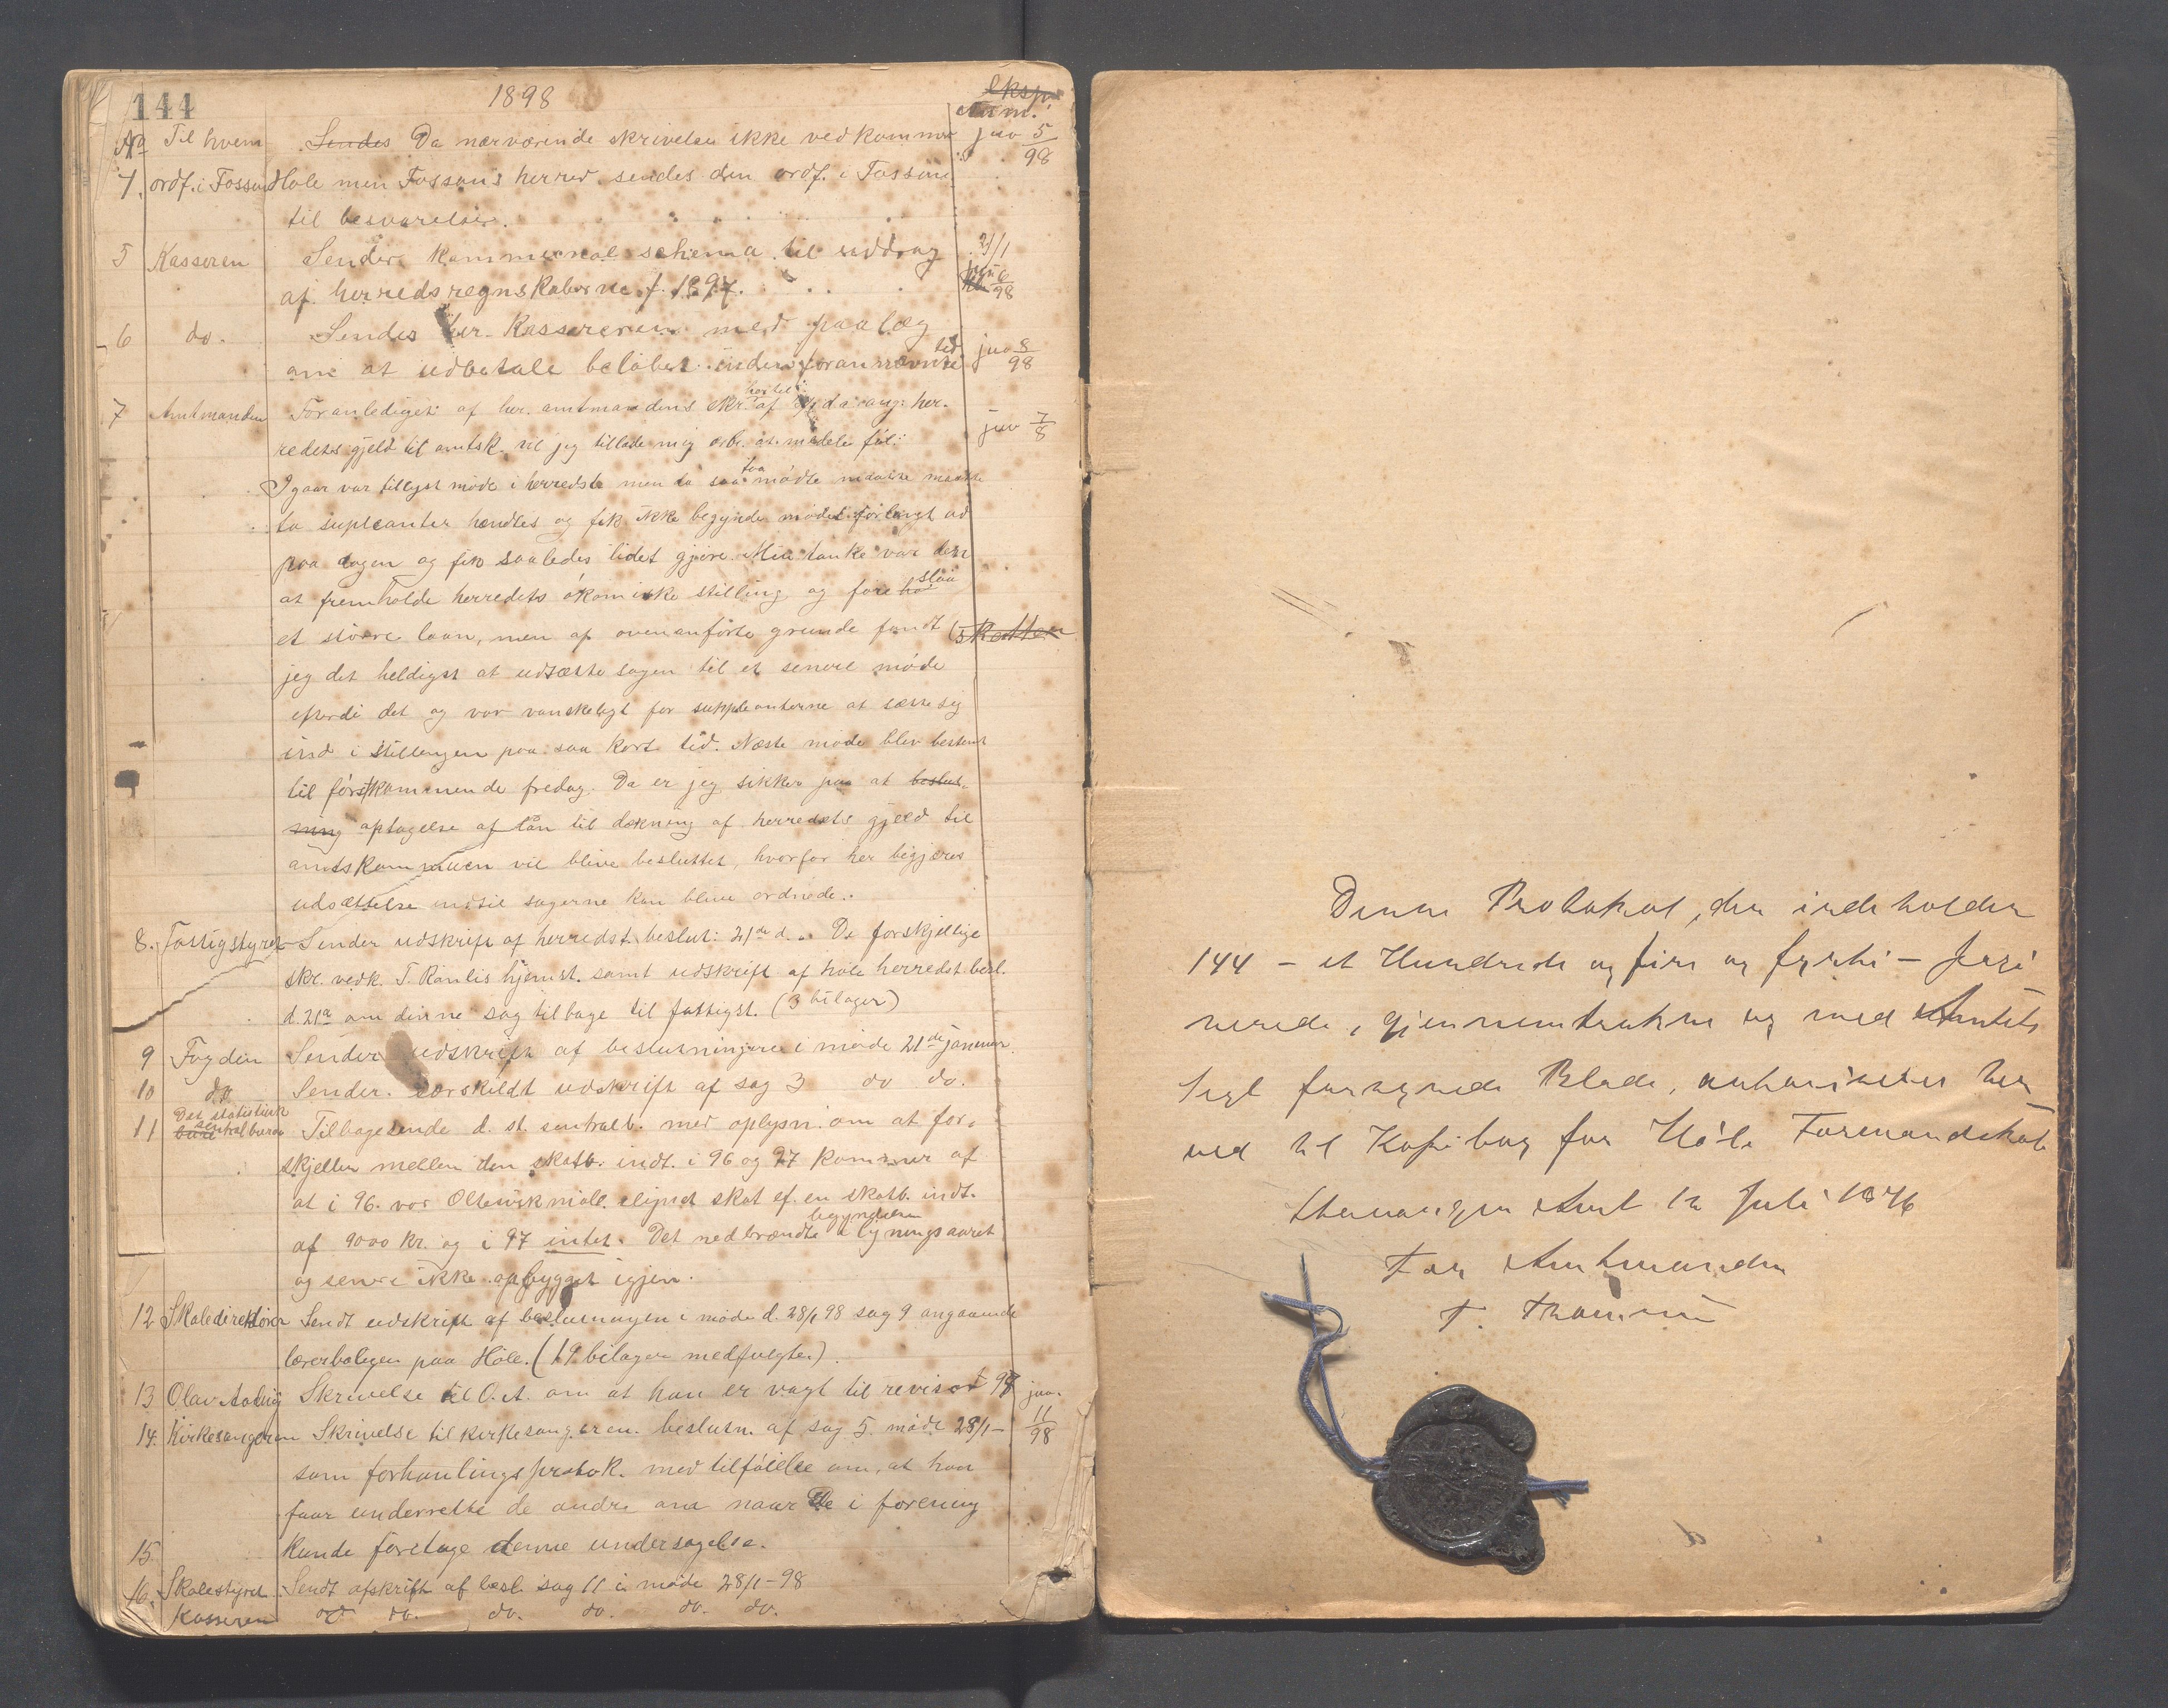 144
1898
No Til hvem Sendes Da nærværende skrivelse ikke vedkommer jan 5/98
ordf. i Fossan Høle men Fossans herred sendes den ordf. i Fossan
til besvarelse.
5 Kasseren Sender kommunal schema til uddrag 21/1
af herredsregnskaberne f. 1897. jan 6/98
6 do. Sendes hr. Kassereren med paalæg
om at udbetale beløbet inden forannævnte tid jan 8/98
7 Amtmanden Foranlediget af hr. amtmandens skr. hertil af d.a. ang: her-
redets gjeld til amtsk. vil jeg tillade mig at meddele føl: jan 7/8
Igaar var tillyst møde i herredst. men da saa faa mødte maatte
to supleanter hendtes og fik ikke begyndt mødet før langt ud
paa dagen og fik saaledes lidet gjøre. Min tanke var den
at fremholde herredets økomiske stilling og foreslaa
et større laan, men af ovenanførte grunde fandt
jeg det heldigst at udsætte sagen til et senere møde
efterdi det og var vanskeligt for suppleanterne at sætte sig
ind i stillingen paa saa kort tid. Næste møde blev bestemt
til førstkommende fredag. Da er jeg sikker paa at beslut-
ning optagelse af lån til dækning af herredets gjeld til
amtskommunen vil blive besluttet, hvorfor her begjæres
udsættelse indtil sagerne kan blive ordnede.
8. Fattigstyret Sender udskrift af herredst. beslut: 21de d.. De forskjellige
skr. vedk. T. Ranlis hjemst. samt udskrift af høle herredst. besl.
d. 21de om denne sag tilbage til fattigst. (3 bilager)
9 Fogden Sender udskrift af beslutningerne i møde 21de januar.
10 do Sender særskildt udskrift af sag 3 do do.
11 Det statistisk sentralbureau Tilbagesende d. st. sentralb. med oplysn. om at for-
skjellen mellem den skatb. indt. i 96 og 97 kommer af
at i 96. var Oltesvik mølle lignet skat ef. en skatb. indt.
af 9000 kr. og i 97 intet. Det nedbrændte i begyndelsen ligningsaaret
og senere ikke opbygget igjen.
12 Skoledirektøren Sendt udskrift af beslutningen i møde d. 28/1 98 sag 9 angaaende
lærerboligen paa Høle. (19 bilager medfulgte)
13 Olav Skrivelse til O.A. om at han er valgt til revisor 98 jan.
14. Kirkesangeren Skrivelse til kirkesangeren. beslutn. af sag 5 møde 28/1- 11/98
som forhanlingsprotok. med tilføielse om, at han
faar underrette de andre om naar De i forening
15 kunde foretage denne undersøgelse.
16. Skolestyret Sendt afskrift af besl. sag 11 i møde 28/1-98
Kasseren do do. do. do. do. do.
Denne Protokol, der indeholder
144 - et Hundrede og fire og fyrti - Pagi
nerede, gjennemtrukne og med Amtets
Segl forsynede Blade, autoriseres her
ved til Kopibog for Høle Formandskab
Stavanger Amt 12 Juli 1876
For Amtmanden
T.